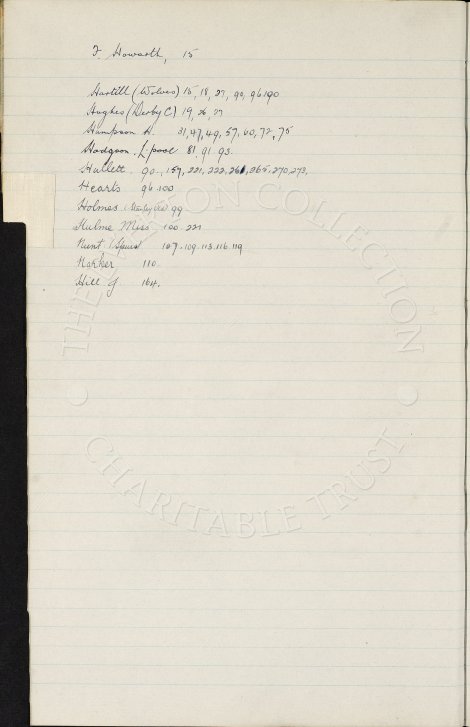 F. Howarth, 15
Hartill (Wolves) 15, 18, 27, 90, 96, 190
Hughes (Derby C) 19, 26, 27
Hampson H. 31, 47, 49, 57, 60, 72, 75
Hodgson. L'pool 81. 91. 93.
Hallett 90., 159, 221, 222, 261, 265, 270, 273.
Hearts 96. 100
Holmes 99
Hulme Miss 100. 221
Hunt (Spurs) 107. 109. 113. 116. 119
110.
Hill J. 164.
THE COLLECTION
CHARITABLE TRUST